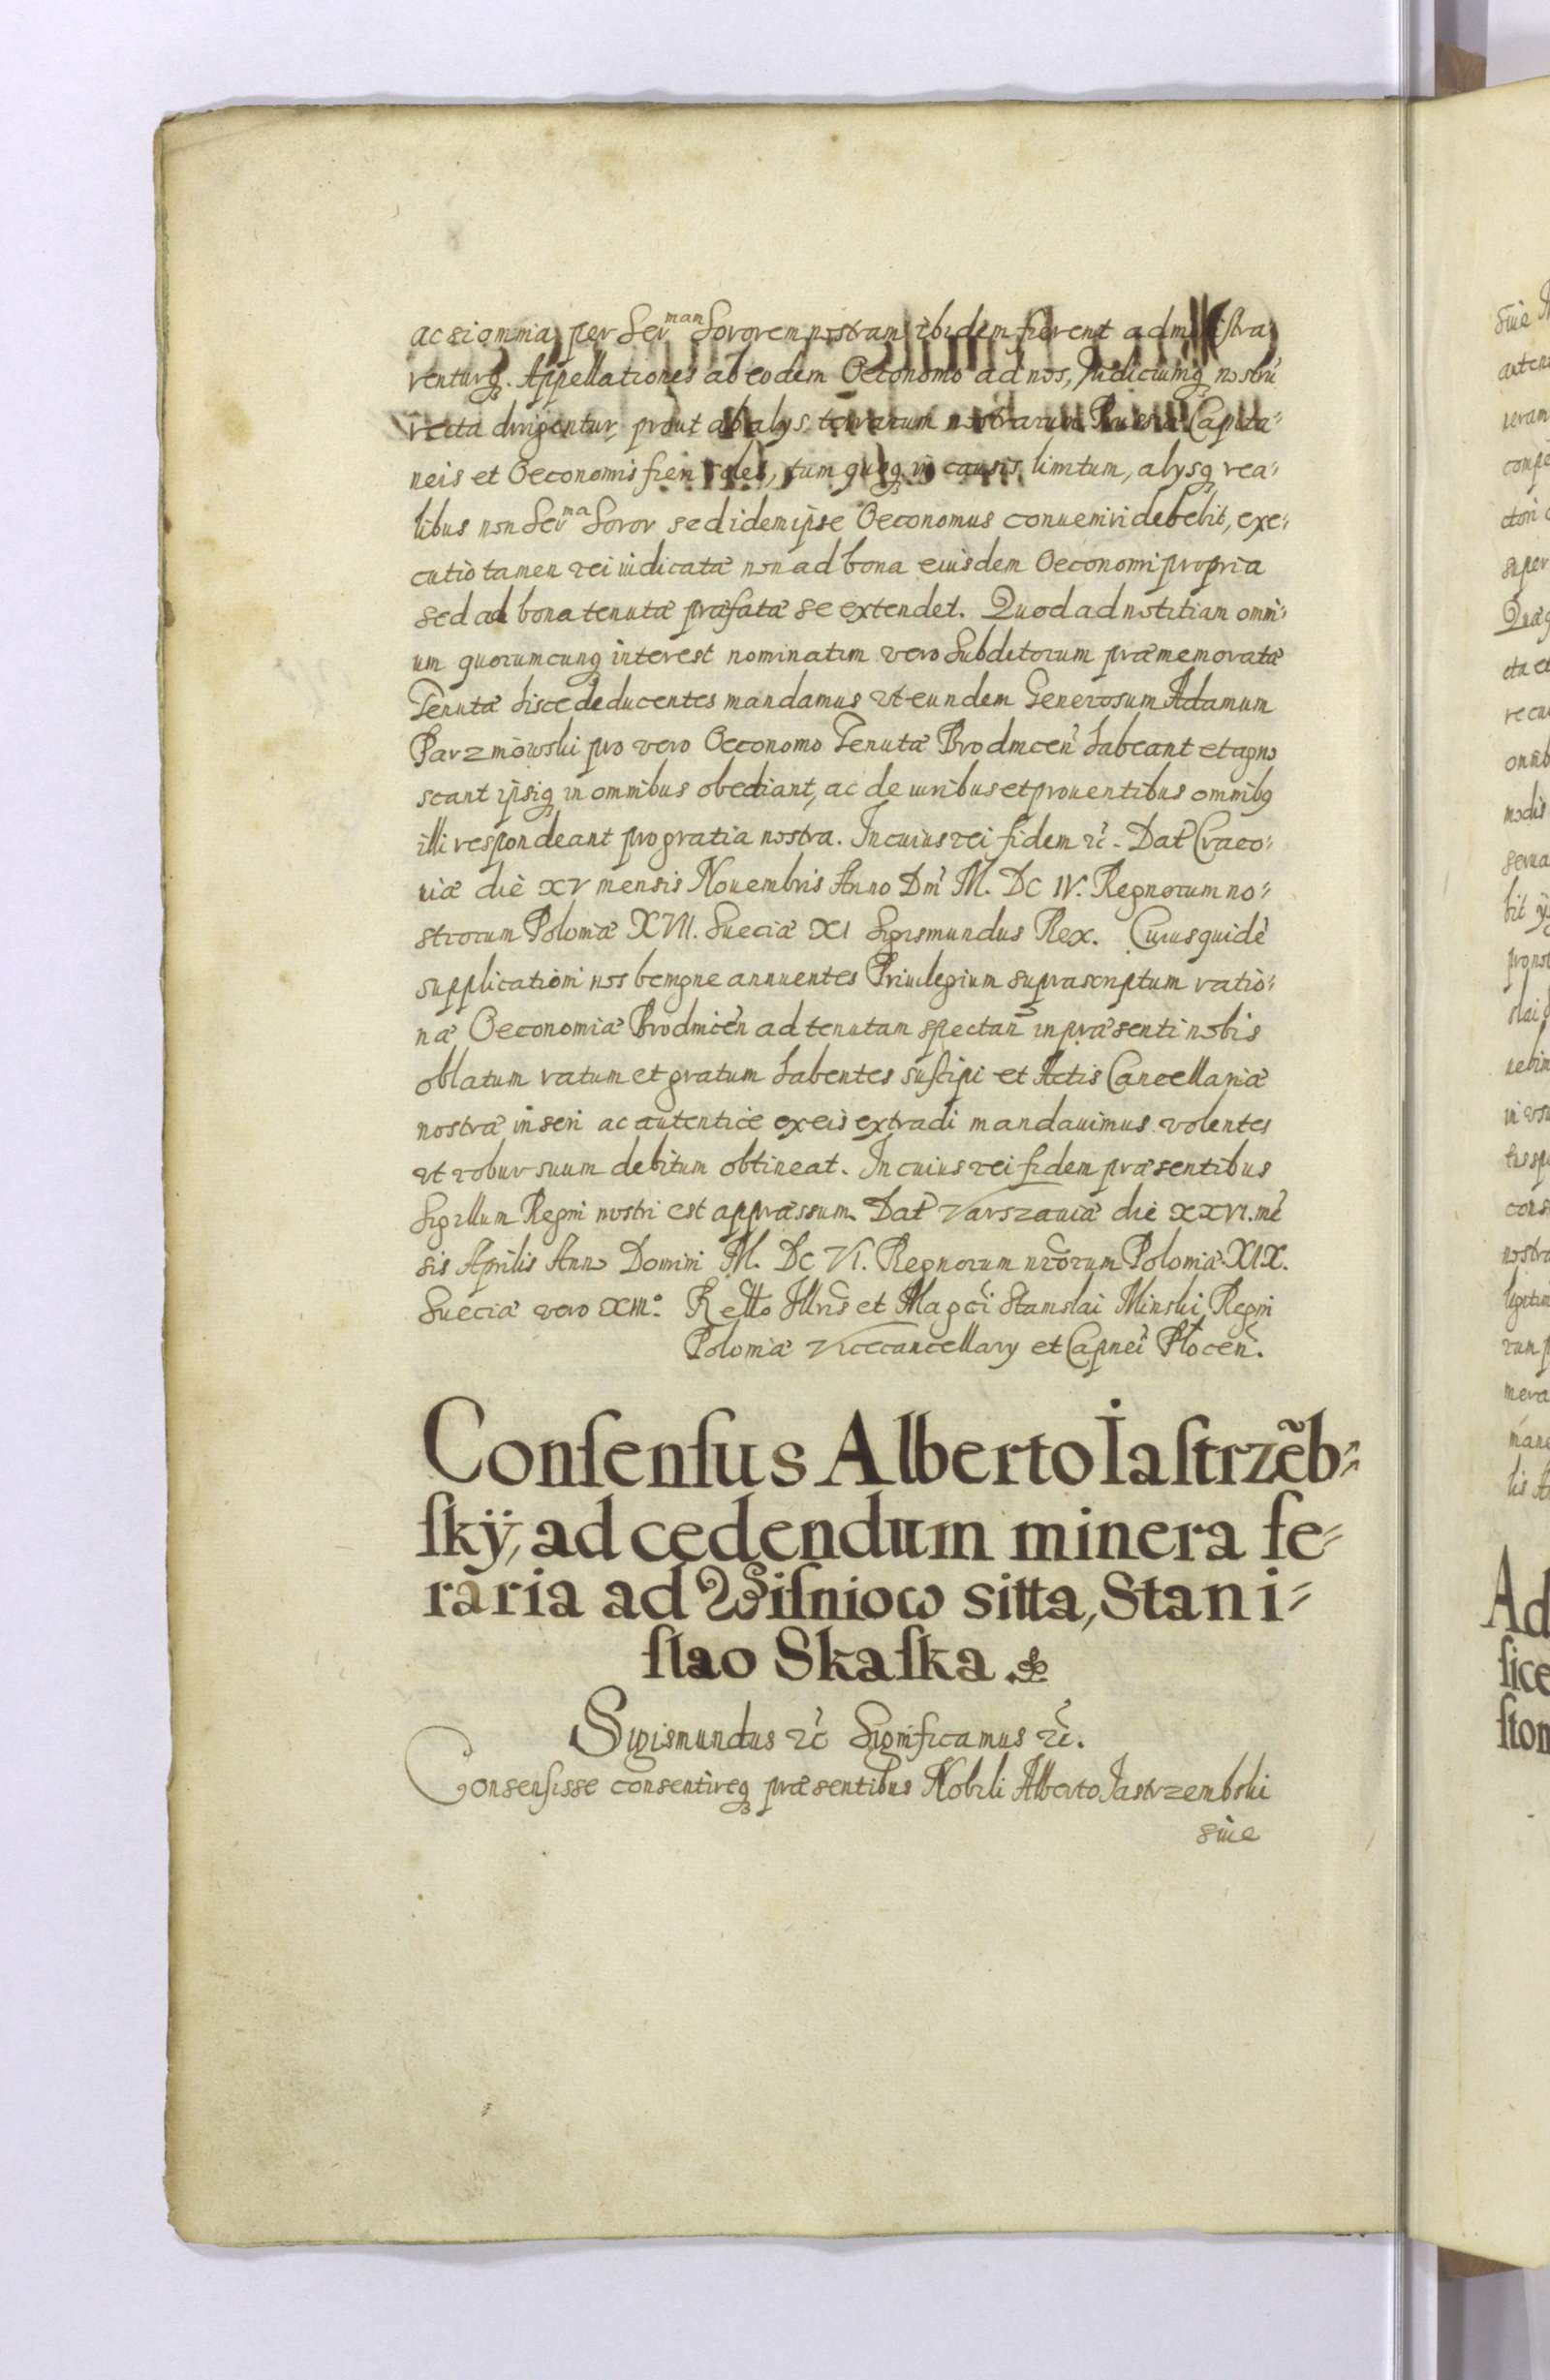 ac si omnia per Ser^man Sororem nostram ibidem fierent administra
renturq;. Appellationes ab eodem Oeconomo ad nos, Iudiciumq; nostrũ
recta dirigentur, prout ab alys terrarum nostrarum Prussiæ Capita⸗
neis et Oeconomis fieri solet, tum quoq; in causis limitum, alysq; rea⸗
libus non Ser^ma Soror sed idem ipse Oeconomus conueniri debebit, exe⸗
cutio tamen rei iudicatæ non ad bona eiusdem Oeconomi propria
sed ad bona tenutæ præfatæ se extendet. Quod ad notitiam omni⸗
um quorumcunq; interest nominatim vero Subditorum præmemoratæ
Tenutæ hisce deducentes mandamus vt eundem Generosum Adamum
Parzniowski pro vero Oeconomo Tenutæ Brodnicen̄ habeant et agno
scant ipsiq; in omnibus obediant, ac de iuribus et prouentibus omnibꝯ
illi respondeant pro gratia nostra. In cuius rei fidem ꝛc̄. Dat̄ Craco⸗
uiæ die XV mensis Nouembris Anno Dm̄ M. DC IV. Regnorum no⸗
strorum Poloniæ XVII. Sueciæ XI Sigismundus Rex. Cuius quidē
supplicationi nos benigne annuentes Priuilegium suprascriptum ratio⸗
næ Oeconomiæ Brodnicen̄ ad tenutam spectan̄ in præsenti nobis
oblatum ratum et gratum habentes suscipi et Actis Cancellariæ
nostræ inseri ac autentice ex eis extradi mandauimus volentes
vt robur suum debitum obtineat. In cuius rei fidem præsentibus
Sigillum Regni nostri est appræssum. Dat̄ Varszauiæ die XXVI. mē
sis Aprilis Anno Domini M. DC VI. Regnorum nr̄orum Poloniæ XIX.
Sueciæ vero XIII°. Rel̄tio Illris̄ et Magc̄i Stanislai Minski Regni
Poloniæ Vicecancellary et Capnei̅ Płocen̄.
Conſenſus Alberto Iaſtrzẽb⸗
ſkÿ, ad cedendum minera fe⸗
raria ad Wiſniow sitta, Stani⸗
ſlao Skaſka.
Sigismundus ꝛc̄ Significamus ꝛc̄.
Consensisse consentireq; præsentibus Nobili Alberto Jastrzembski
siue